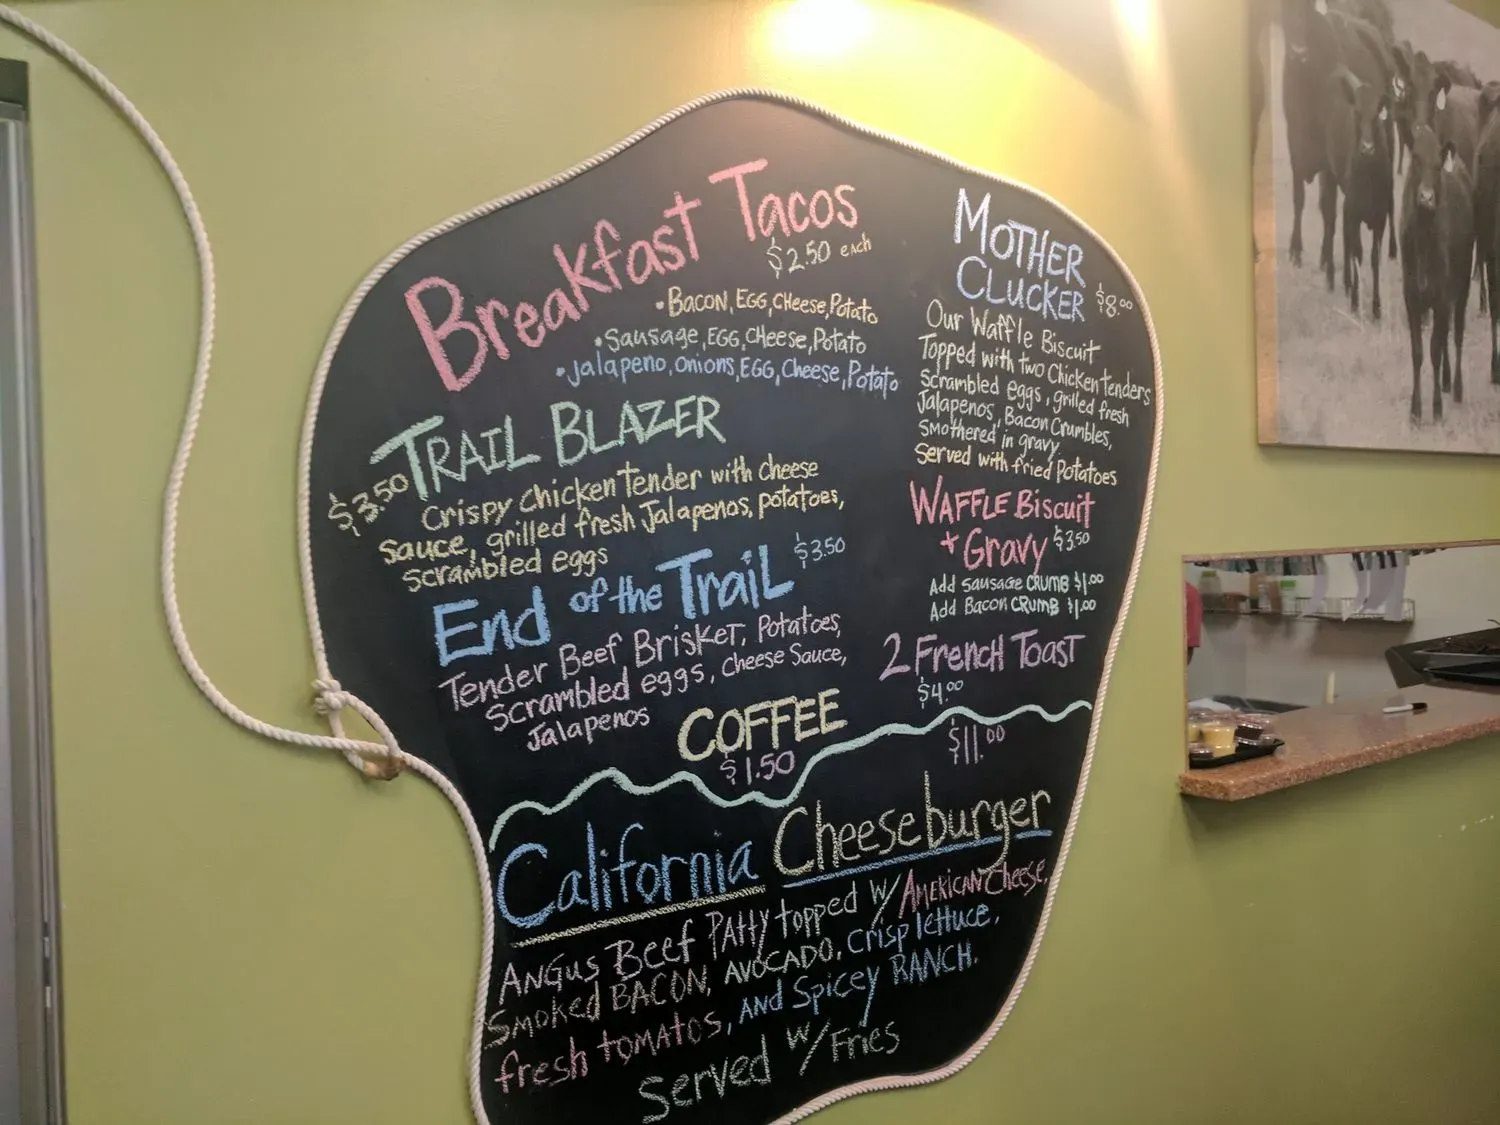 Breakfast Tacos
$2.50 each
•Bacon, EGG, Cheese, Potato
•Sausage, EGG, CHeese, Potato
•Jalapeno, onions, EGG, Cheese, Potato
TRAIL BLAZER
$3.50
Crispy Chicken Tender with cheese
Sauce, grilled fresh Jalapenos, potatoes,
scrambled eggs
End of the TraiL $3.50
Tender Beef BriskeT, Potatoes,
Scrambled eggs, Cheese Sauce,
Jalapenos
COFFEE
$1.50
MOTHER
CLUCKER $8.00
Our Waffle Biscuit
Topped with two Chicken tenders
Scrambled eggs, grilled fresh
Jalapenos, Bacon Crumbles,
Smothered in gravy
Served with fried Potatoes
WAFFLE Biscuit
+ Gravy $3.50
Add Sausage CRUMB $1.00
Add Bacon CRUMB $1.00
2 French Toast
$4.00
$11.00
California Cheeseburger
Angus Beef Patty topped w/ American Cheese,
Smoked BACON, AVOCADO, Crisp lettuce,
fresh tomatos, and Spicey RANCH.
Served w/ Fries